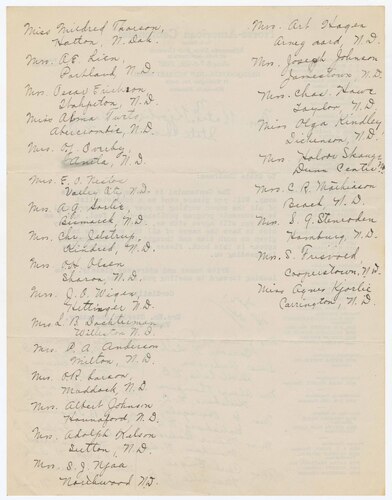 Miss Mildred Thorson,
Hatton, N. Dak.
Mrs. A. E. Lien,
Portland, N.D.
Mrs. Oscar Erickson
Wahpeton, N.D.
Miss Alma
Abercrombie, N.D.
Mrs. O. J. Overby,
N.D.
Mrs. E. O. Nestos
Valley City, N.D.
Mrs. A. G. Sorlie,
Bismarck, N.D.
Mrs. Chr. Jelstrup,
Kindred, N.D.
Mrs. O. H. Olsen
Sharon, N.D.
Mrs. J. O. Wigen,
Hettinger N.D.
Mrs. L. B. Dochterman,
Williston N.D.
Mrs. P. A. Anderson
Milton, N.D.
Mrs. O. R. Larson,
Maddock, N.D.
Mrs. Albert Johnson
Hannaford, N.D.
Mrs. Adolph Nelson
Sutton, N.D.
Mrs. S. J. Njaa
Northwood N.D.
Mrs. Art Hagen
Arnegaard, N.D.
Mrs. Joseph Johnson
Jamestown, N.D.
Mrs. Chas. Howe
Taylor, N.D.
Miss Olga Kindley
Dickinson, N.D.
Mrs. Halvor Skauge
Dunn Center N.D.
Mrs. C. R. Mathieson
Beach N.D.
Mrs. S. G. Stenroden
Hamburg, N.D.
Mrs. S. Frisvold
Cooperstown, N.D.
Miss Agnes Kjorlie
Carrington, N.D.